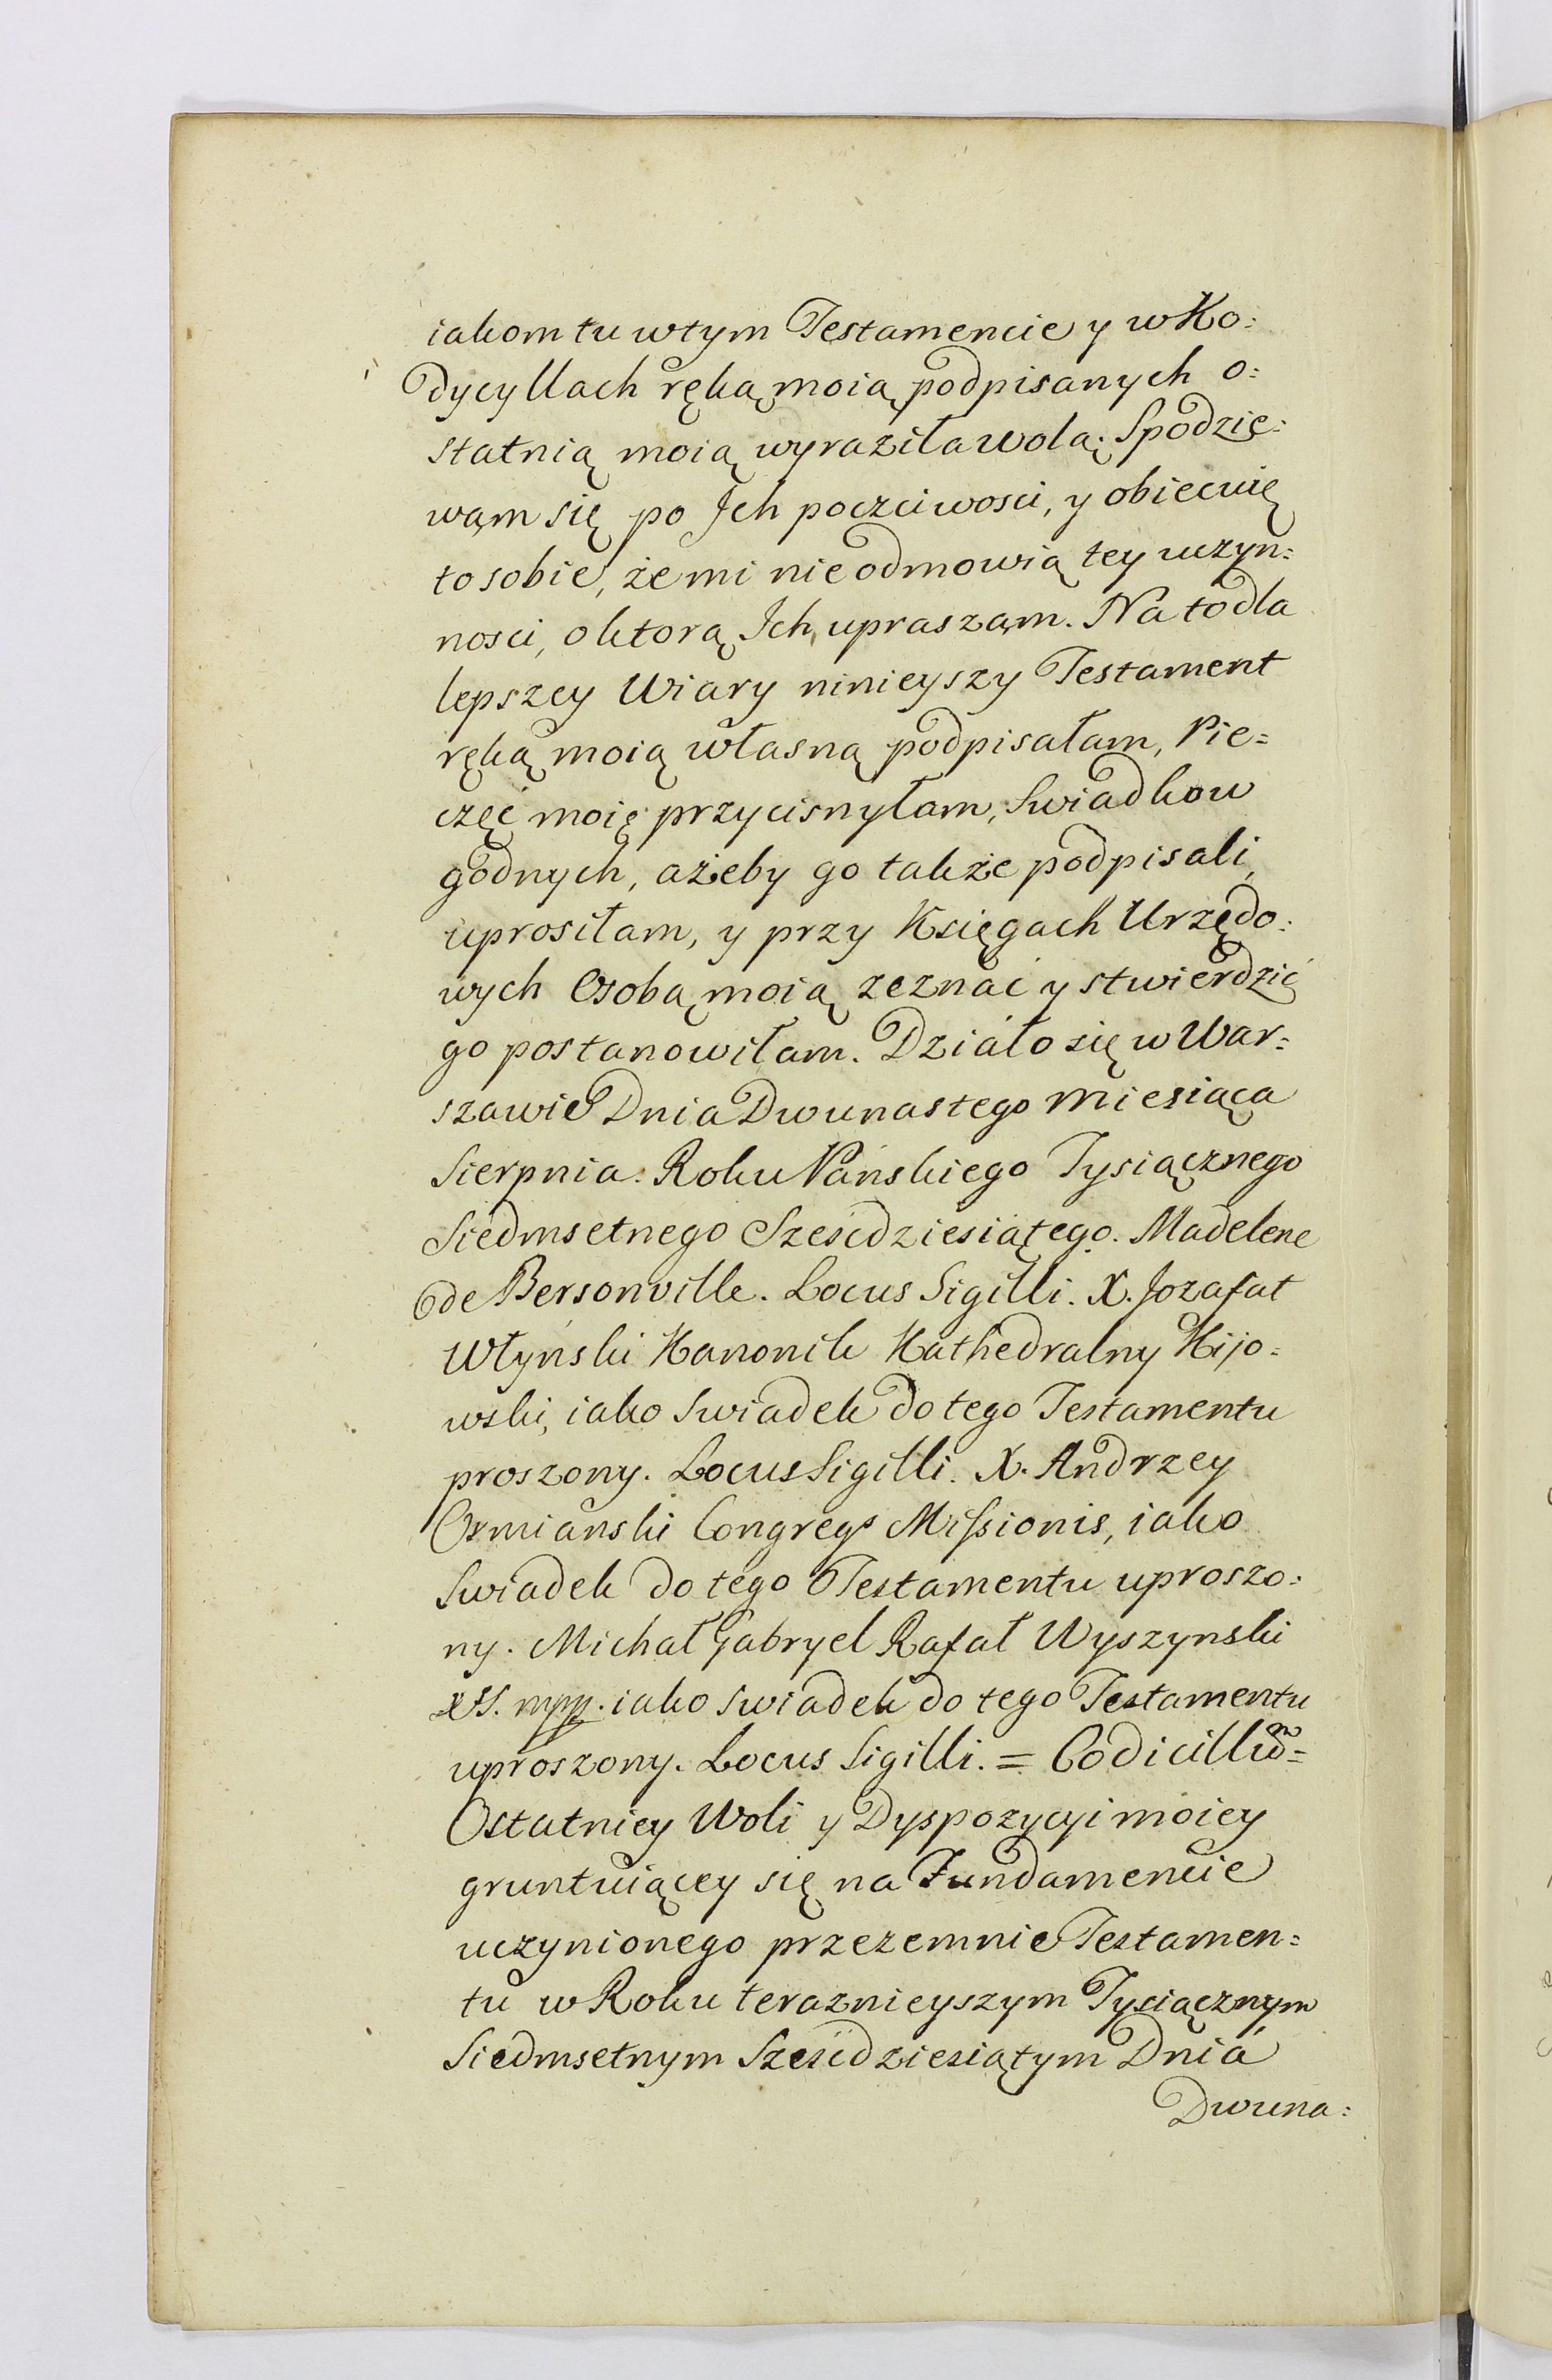 iakom tu w tym Testamencie y w Ko:
dycyllach ręką moią podpisanych o:
statnią moią wyraziła wolą. Spodzię:
wąm się po Jch poczciwosci, y obiecuię
to sobie, że mi nie odmowią tey uczyn:
nosci, o ktorą Jch uprasząm. Na to dla
lepszey Wiary ninieyszy Testament
ręką moią własną podpisałam, Pie=
częć moię przycisnyłam, Swiadkow
godnych, ażeby go także podpisali,
uprosiłam, y przy Księgach Urzędo:
wych Osobą moią zeznać y stwierdzić
go postanowiłam. Działo się w War:
szawie Dnia Dwunastego Miesiąca
Sierpnia Roku Pańskiego Tysiącznego
Siedmsetnego Sześćdziesiątego. Madelene
de Bersonville. Locus Sigilli. X. Jozafat
Włyński Kanonik Kathedralny Kijo=
wski, iako Swiadek do tego Testamentu
proszony. Locus Sigilli. X. Andrzey
Ormiański Congregs Missionis, iako
Swiadek do tego Testamentu uproszo:
ny. Michał Gabryel Rafał Wyszynski
mpp. iako Swiadek do tego Testamentu
uproszony. Locus Sigilli. = Codicillũ=
Ostatniey Woli y Dyspozycyi moiey
gruntuiącey się na Fundamencie
uczynionego przezemnie Testamen=
tu w Roku teraznieyszym Tysiącznym
Siedmsetnym Sześćdziesiątym Dniá
Dwuna: